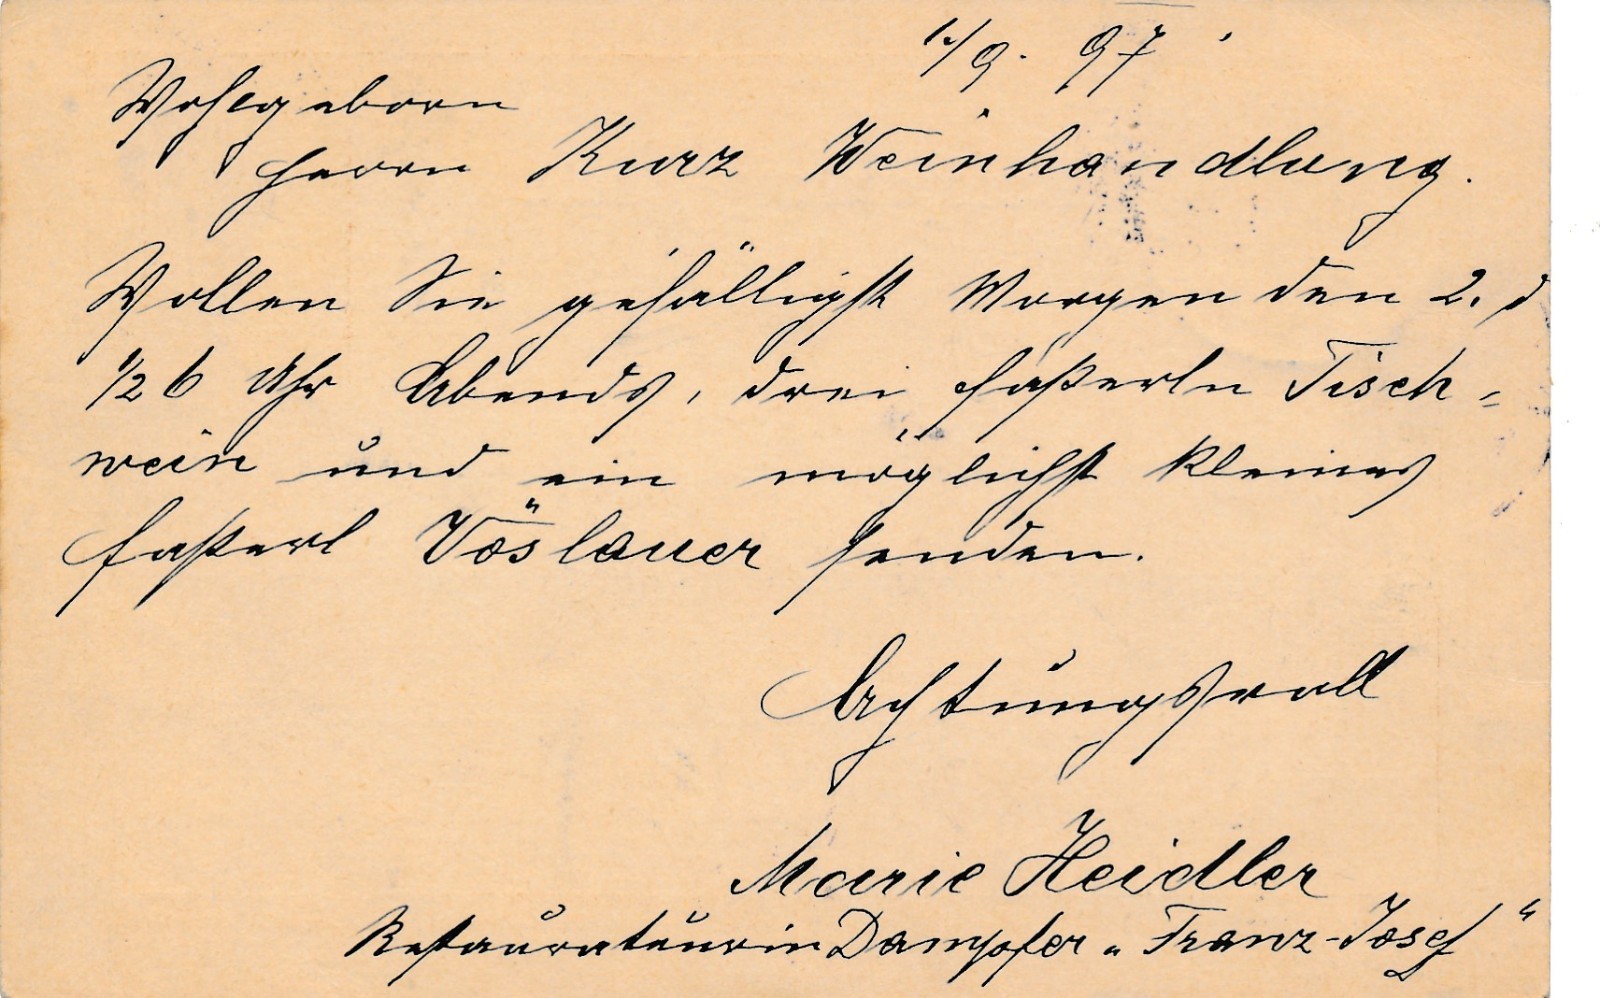 1./9. 97
Wohlgeborn
Herrn Kurz Weinhandlung.
Wollen Sie gefälligst Morgen den 2. d
1/2 6 Uhr Abends, drei Faßerln Tisch=
wein und ein möglichst kleines
Faßerl Vöslauer senden.
Achtungsvoll
Marie Heidler
Restaurateurin Dampfer „Franz-Josef“